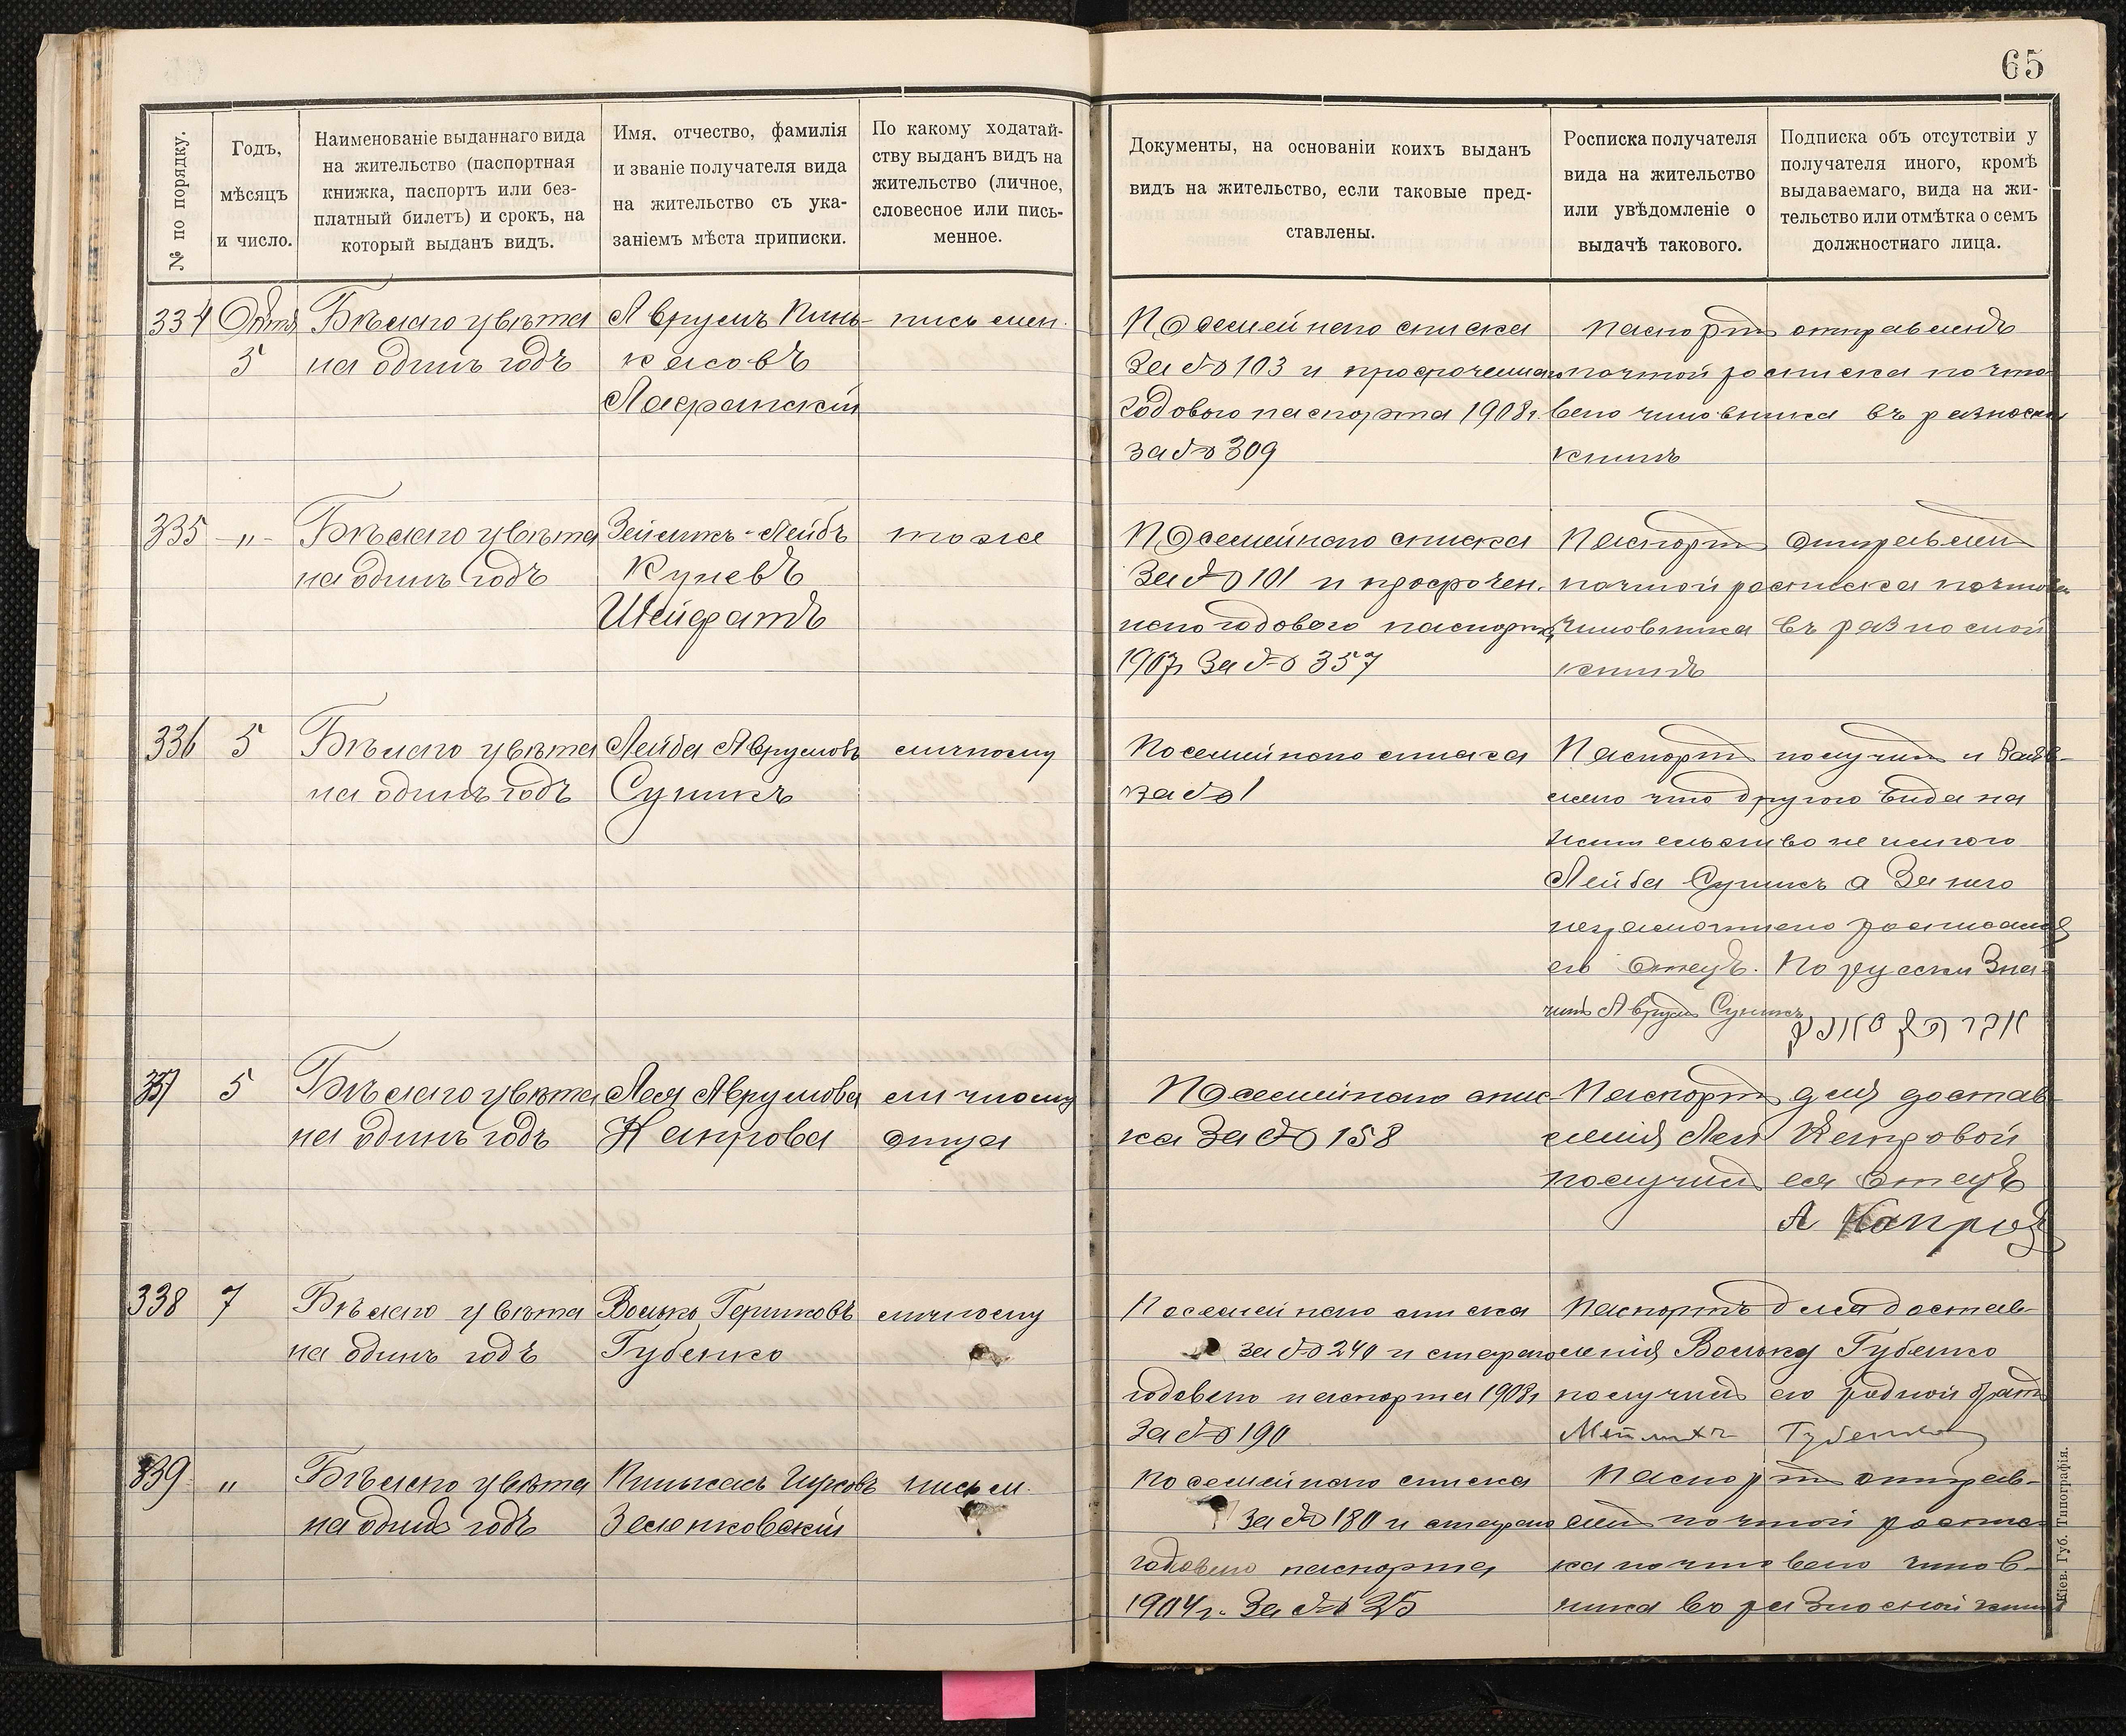 65
№ по порядку.
Годъ,
мѣсяцъ
и число.
Наименованіе выданнаго вида
на жительство (паспортная
книжка, паспортъ или без-
платный билетъ) и срокъ, на
который выданъ видъ.
Имя, отчество, фамилія
и званіе получателя вида
на жительство съ ука-
заніемъ мѣста приписки.
По какому ходатай-
ству выданъ видъ на
жительство (личное,
словесное или пись-
менное.
Документы, на основаніи коихъ выданъ
видъ на жительство, если таковые пред-
ставлены.
Росписка получателя
вида на жительство
или увѣдомленіе о
выдачѣ такового.
Подписка объ отсутствіи у
получателя иного, кромѣ
выдаваемаго, вида на жи-
тельство или отмѣтка о семъ
должностнаго лица.
334
5
Бѣлаго цвѣта
на одинъ годъ
Аврумъ Пинь-
касовъ
писмен.
Посемейнаго списка
За № 103 и
годового паспорта 1908г.
за № 309
паспорт отправленъ
почтой росписка почто-
ваго чиновника въ разноснъ
книгъ
335 -"-
Бѣлаго цвѣта
на одинъ годъ
Зейликъ-Лейбъ
Куневъ
Шейфатъ
тоже
Посемейнаго списка
За № 101 и просрочен.
наго годового паспорта
1907г За № 357
Паспорт отправлен
почтой росписка почтова
чиновника въ разносной
книгъ
336 5
Бѣлаго цвѣта
на одинъ годъ
Лейба Аврумовъ
Сушикъ
личному
Посемейнаго списка
за № 1
Паспорт получил и Заяв-
лено что другого вида на
жительство не имѣю
Лейба а За него
неграмотнаго росписался
его отецъ. По русски Зна-
чит Аврум
337 5
Бѣлаго цвѣта
на одинъ годъ
Лея Аврумова
Капрова
личному
отца
Посемейнаго спис-
ка За № 158
Паспорт для достав-
ленія Леи Капровой
получил ея отецъ
А Капров
338 7
Бѣлаго цвѣта
на одинъ годъ
Волько Гершковъ
Губенко
личному
Посемейнаго списка
за № 240 и стараго
годоваго паспорта 1908г
За № 190
паспортъ для достав-
ленія Вольку Губенко
получил его родной брат
Губенко
339 "
Бѣлаго цвѣта
на одинъ годъ
Пинькасъ Ицковъ
Зеленковскій
письм.
посемейнаго списка
за № 180 и стараго
годоваго паспорта
1904г. За № 25
Паспорт отправ-
лен почтой роспис-
ка почтоваго чинов-
ника во разносной книг
Кіев. Губ. Типографія.